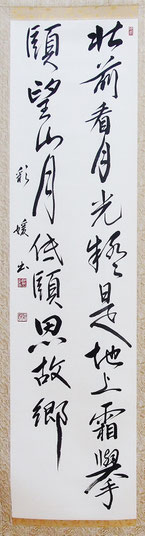 牀前看月光疑是地上霜擧
頭望山月低頭思故鄉
彩媛書